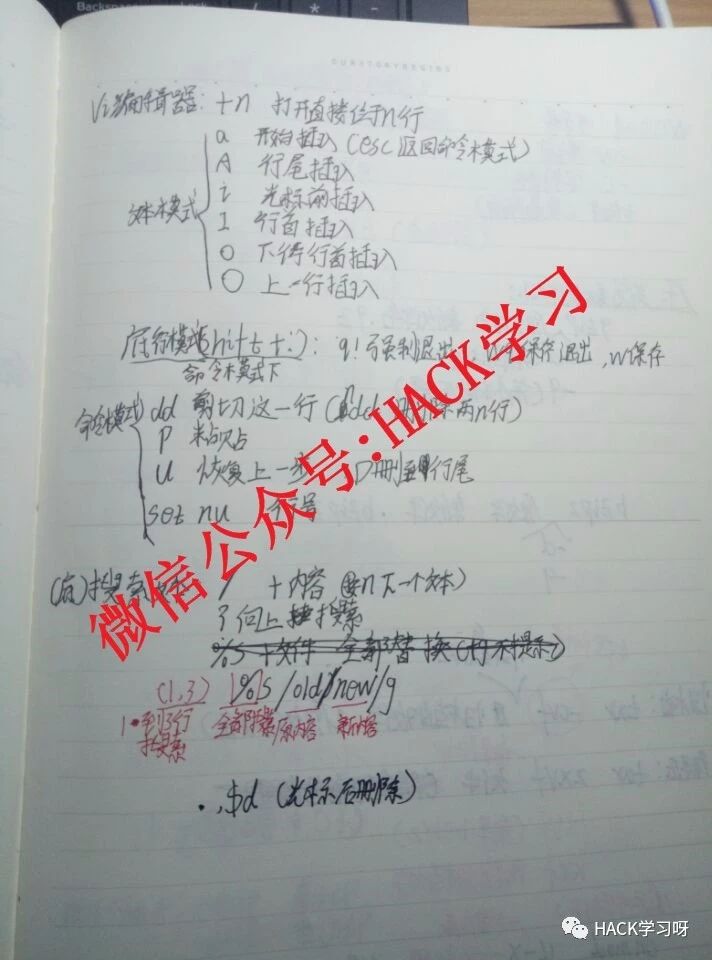 Backspace
Lock
/ * -
Vi编辑器: +n 打开直接位于n行
文本模式
a 开始插入 (esc返回命令模式)
A 行尾插入
i 光标前插入
I 行首插入
o 下一行行首插入
O 上一行插入
底行模式(shift + :): q!强制退出, 保存退出, w保存
命令模式下
命令模式
dd 剪切这一行 (ndd 删除n行)
p 粘贴
u 恢复上一步 D删至行尾
set nu 行号
搜索 / +内容 (按n下一个文本)
? 向上搜索
%s +文件 全部替换 (不提示)
(1,3) %s /old/new/g
1到3行 搜索 全部搜索 原内容 新内容
.,$d (光标后删除)
微信公众号:HACK学习
HACK学习呀